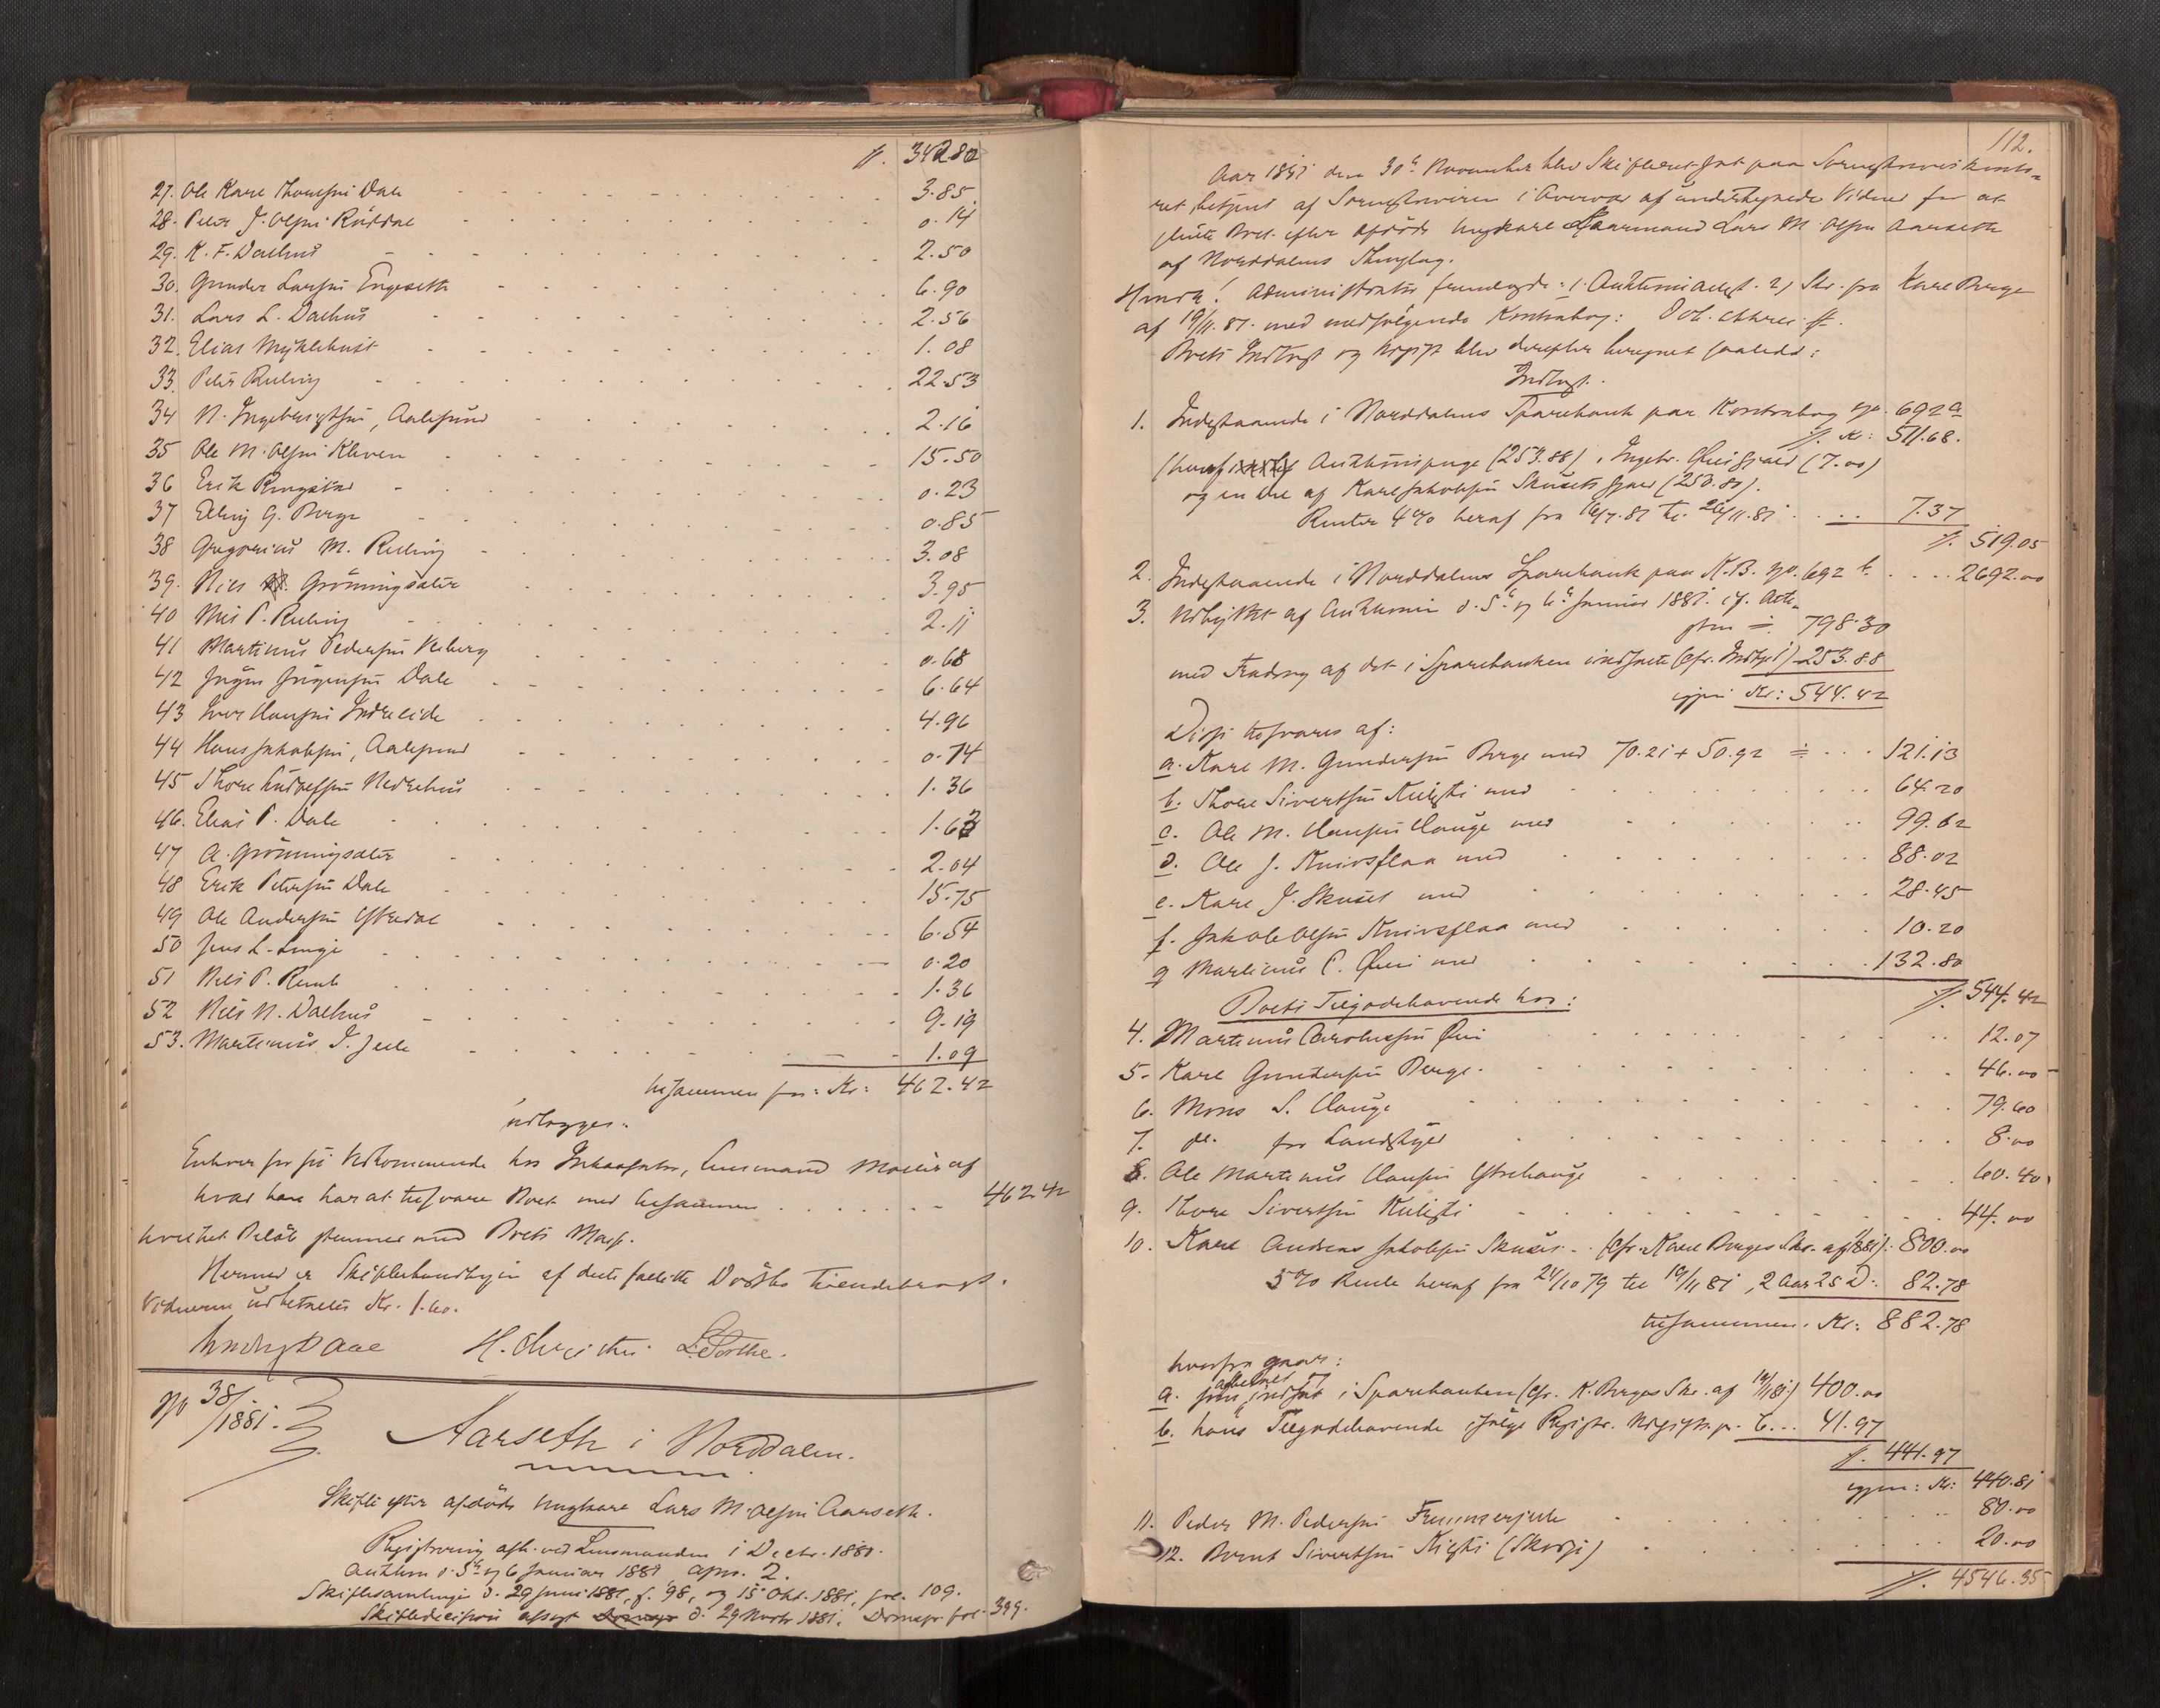 lf. 342.80
27. Ole Karl Thomesen Dale 3.85
28. Peter J. Olsen Röddal 0.14
29. K. F. Dalhus 2.50
30. Gunder Larsen Engeseth 6.90
31. Lars L. Dalhus 2.56
32. Elias Myklebust 1.08
33. Peter Reling 22.53
34 N. Ingebrigtsen, Aalesund 2.16
35 Ole M. Olsen Kleven 15.50
36 Erik Ringstad 0.23
37 Elling G. Berge 0.85
38 Gregorius M. Reling 3.08
39. Nils Grönningsæter 3.95
40 Nils P. Reling 2.11
41 Martinus Pedersen Neberg 0.68
42 Jörgen Jörgensen Dale 6.64
43 Iver Hansen Indreeide 4.96
44 Hans Jakobsen, Aalesund 0.74
45 Thore Andressen Nedrehus 1.36
46. Elias P. Dale 1.63
47 A. Grönningsæter 2.04
48 Erik Petersen Dale 15.75
49 Ole Andersen Ytredal 6.54
50 Jens L. Linge 0.20
51 Nils P. Remb 1.36
52 Nils N. Dalhus 9.19
53. Martinus I. Jelle 1.09
tilsammen fra: Kr: 462.42
udlægges:
Enhver for sit Vedkommende hos Inkassator, Lensmand af
hvad han har at tilsvare Boet med tilsammen 462.42
hvilket Beløb stemmer med Boets Masse.
Hermed er Skiftebehandlingen af dette fælleds Dødsbo tilendebragt.
Vidnerne udbetaltes Kr. 1.60.
Aae H. Christie
No 38/1881.
Aarseth i Norddalen.
Skifte efter afdöde Ungkarl Lars M. Olsen Aarseth.
Registrering afh. ved Lensmanden i Decbr. 1880.
Auktion d. 5te og 6 Januar 1881 2.
Skiftesamlinger d. 29 Juni 1881, f. 98, og 15 Okt. 1881, fol. 109.
Skiftedecision afsagt d. 29 Novbr 1881. Domspr. fol. 399.
112.
Aar 1881 den 30te November blev Skifteret sat paa Sorenskriverkonto-
ret, betjent af Sorenskriveren i Overvær af undertegnede Vidner for at
slutte Boet efter afdöde Ungkarl Lars M. Olsen Aarseth
af Norddalens Thinglag.
Administrator fremlagde: 1. 2, Skr. fra Karl Berge
af 19/11.81. med medfölgende Kontrabog:
Boets Indtægt og Udgift blev derefter beregnet saaledes:
Indtægt.
1. Indestaaende i Norddalens Sparebank paa Kontrabog No. 692 a
lf. Kr: 511.68.
(heraf Auktionspenge (253.88), Ingebr. (7.00)
og en Del af Karl Jakobsen (250.80).
Renter 4% heraf fra 16/7.81 til 26/11.81 7.37
lf. 519.05
2. Indestaaende i Norddalens Sparebank paa K.B. No. 692 b 2692.00
3. Udbyttet af Auktionen d. 5te og 6te Januar 1881. cf. Atte-
sten = 798.30
med Fradrag af det i Sparebanken indsatte (cfr. Indtgt 1) 253.88
igjen Kr: 544.42
Disse tilsvares af:
a. Karl M. Gundersen Berge med 70.21 + 50.92 = 121.13
b. Thore Sivertsen med 64.20
c. Ole M. Hansen Hauge med 99.62
d. Ole J. Knivsflaa med 88.02
e. Karl J. med 28.45
f. Jakob Olsen Knivsflaa med 10.20
g Martinus C. Øien med 132.80
lf. 544.42
Boets Tilgodehavende hos:
4. Martinus Carolussen Øien 12.07
5. Karl Gundersen Berge 46.00
6. Mons S. Hauge 79.60
7. do. for Landskyld 8.00
8. Ole Martinus Hansen Ytrehauge 60.40
9. Thore Sivertsen 44.00
10. Karl Andreas Jakobsen (cfr. Karl Berges Skr. af 1881): 800.00
5% Rente heraf fra 24/10 79 til 19/11 81, 2 Aar 25 D.: 82.78
tilsammen. Kr: 882.78
hvorfra gaar:
a. som allerede indsat i Sparebanken (cfr. K. Berges Skr. af 19/11 81) 400.00
b. hans Tilgodehavende ifølge Registr. Udgiftsp. 6... 41.97
lf. 441.97
igjen: Kr: 440.81
11. Peder M. Pedersen 80.00
12. Bernt Sivertsen (Skodje) 20.00
lf. 4546.35